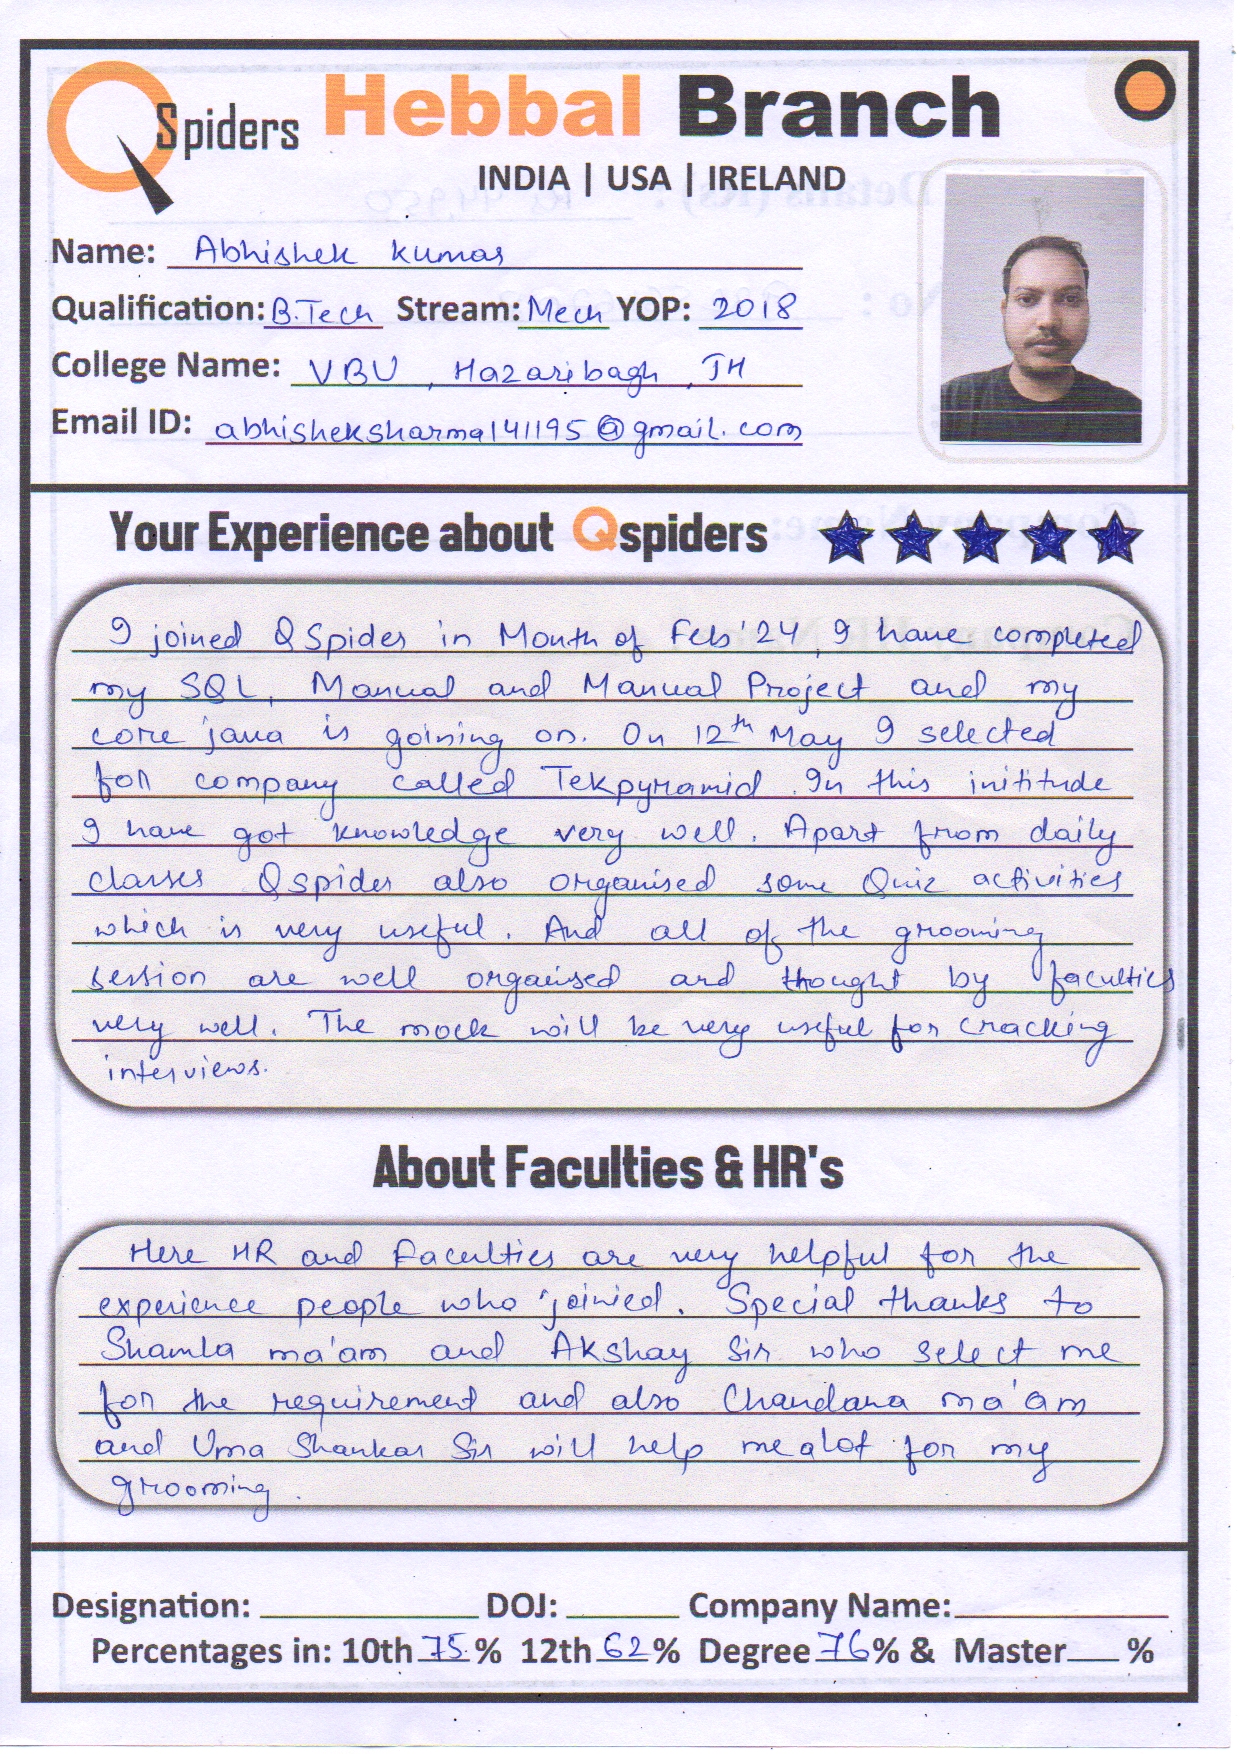 QSpiders Hebbal Branch
INDIA | USA | IRELAND
Name: Abhishek Kumar
Qualification: B.Tech Stream: Mech YOP: 2018
College Name: VBU, Hazaribagh, JH
Email ID: abhisheksharma141195@gmail.com
Your Experience about Qspiders
I joined QSpider in Month of Feb'24, I have completed
my SQL, Manual and Manual Project and my
core java is goining on. On 12th May I selected
for company called Tekpyramid. In this inititude
I have got knowledge very well. Apart from daily
classes Qspider also organised some Quiz activities
which is very useful. And all of the grooming
session are well organised and thought by faculties
very well. The mock will be very useful for cracking
interviews.
About Faculties & HR's
Here HR and Faculties are very helpful for the
experience people who joinied. Special thanks to
Shamla ma'am and Akshay Sir who select me
for the requirement and also Chandana ma'am
and Uma Shankar Sir will help me alot for my
grooming.
Designation: DOJ: Company Name:
Percentages in: 10th 75% 12th 62% Degree 76% & Master %